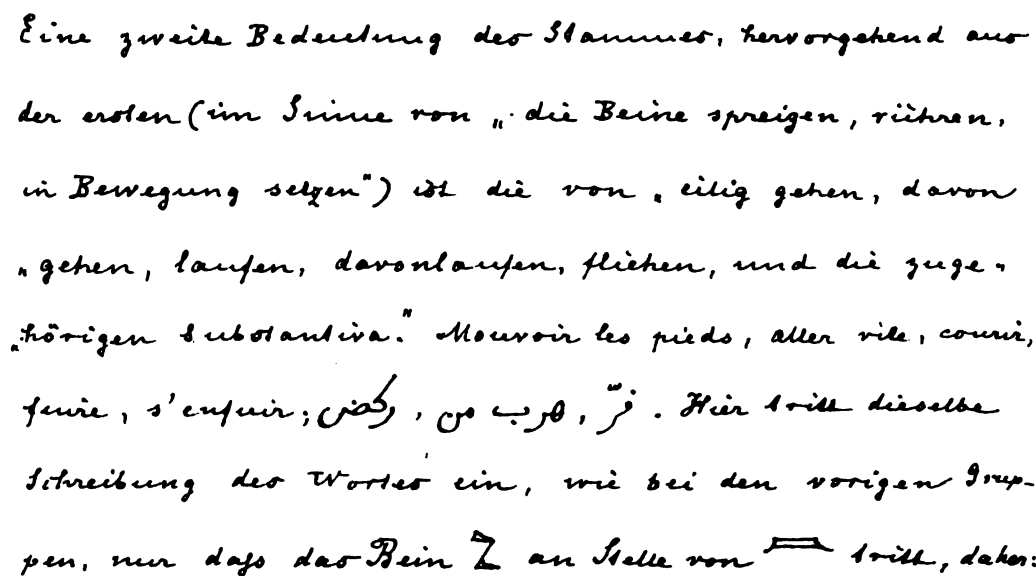 Eine zweite Bedeutung des Stammes, hervorgehend aus
der ersten (im Sinne von „die Beine spreizen, rühren,
in Bewegung setzen“) ist die von „eilig gehen, davon
„gehen, laufen, davonlaufen, fliehen, und die zuge-
„hörigen Substantiva.“ Mouvoir les pieds, aller vite, courir,
fuire, s'enfuir; ركض, هرب من, فرّ. Hier tritt dieselbe
Schreibung des Wortes ein, wie bei den vorigen Grup-
pen, nur daſs das Bein an Stelle von tritt, daher: